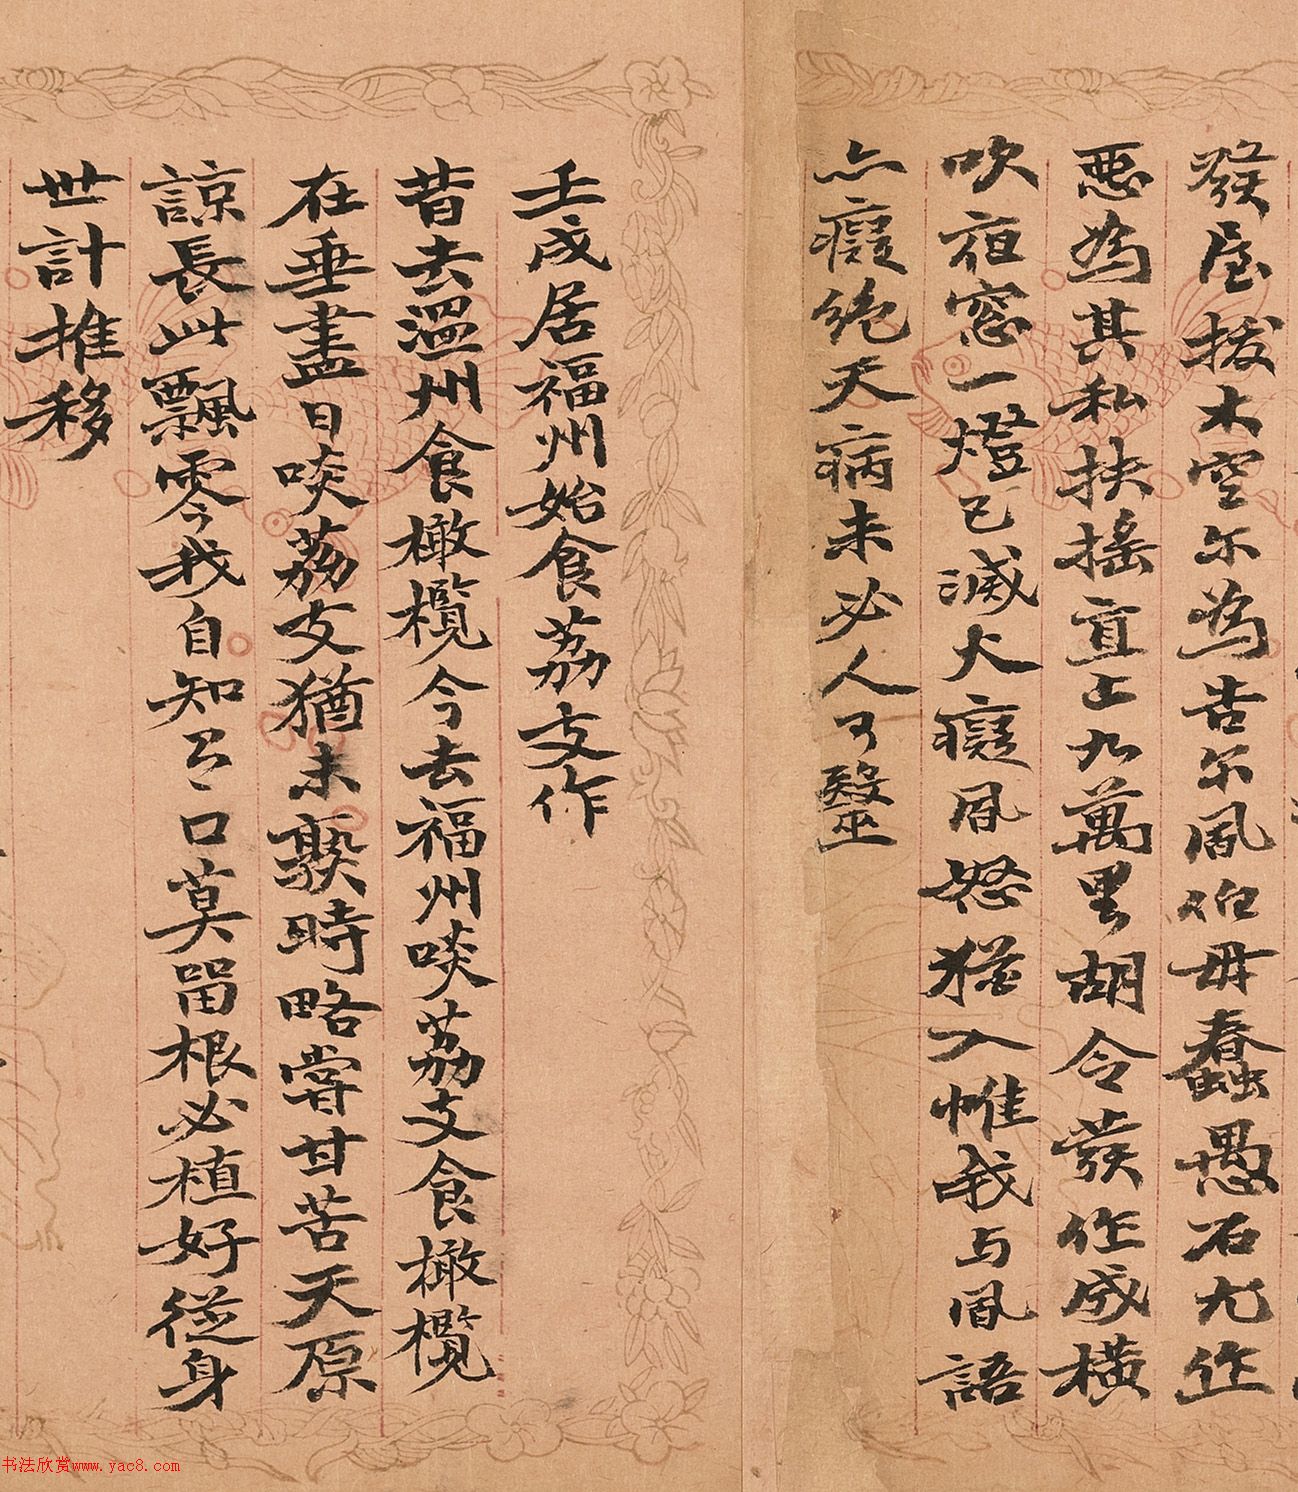 發屋拔木空尔為告尔風伯毋蠢愚石尤作
惡為其私扶搖直上九萬里胡令發作威橫
吹夜窓一燈已滅大癡風怒猶入帷我与風語
亦癡絶天病未必人可醫
壬戌居福州始食荔支作
昔去溫州食橄欖今去福州啖荔支食橄欖
在垂盡日啖荔支猶未熟時略嘗甘苦天原
諒長此飄零我自知口莫留根必植好從身
世計推移
书法欣赏www.yac8.com